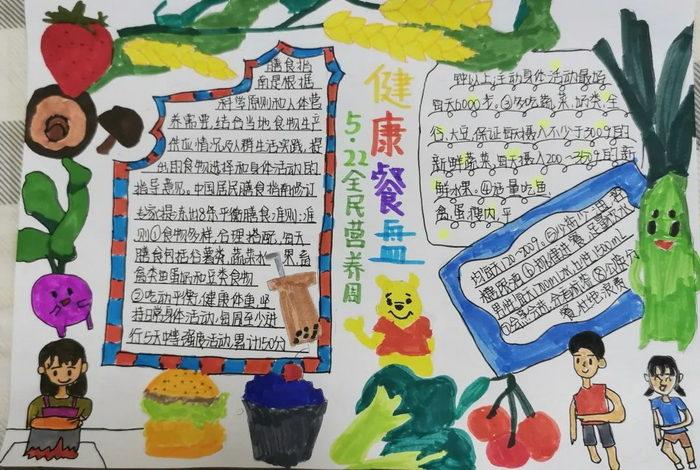 健康餐盘
5·22全民营养周
膳食指
南是根据
科学原则和人体营
养需要,结合当地食物生产
供应情况及人群生活实践,提
出的食物选择和身体活动的
指导意见。中国居民膳食指南修订
专家提炼出8条平衡膳食准则:准
则①食物多样,合理搭配,每天
膳食包括谷薯类 蔬菜水果 畜
禽类蛋奶和豆类食物
②吃动平衡,健康体重,坚
持日常身体活动,每周至少进
行5天中等强度活动,累计150分
钟以上,主动身体活动最好
每天6000步。③多吃蔬果、奶类、全
谷、大豆,保证每天摄入不少于300g的
新鲜蔬菜,每天摄入200~350g的新
鲜水果。④适量吃鱼、
禽、蛋、瘦肉,平
均每天120~200g。⑤少盐少油,
糖限酒⑥规律进餐,足量饮水